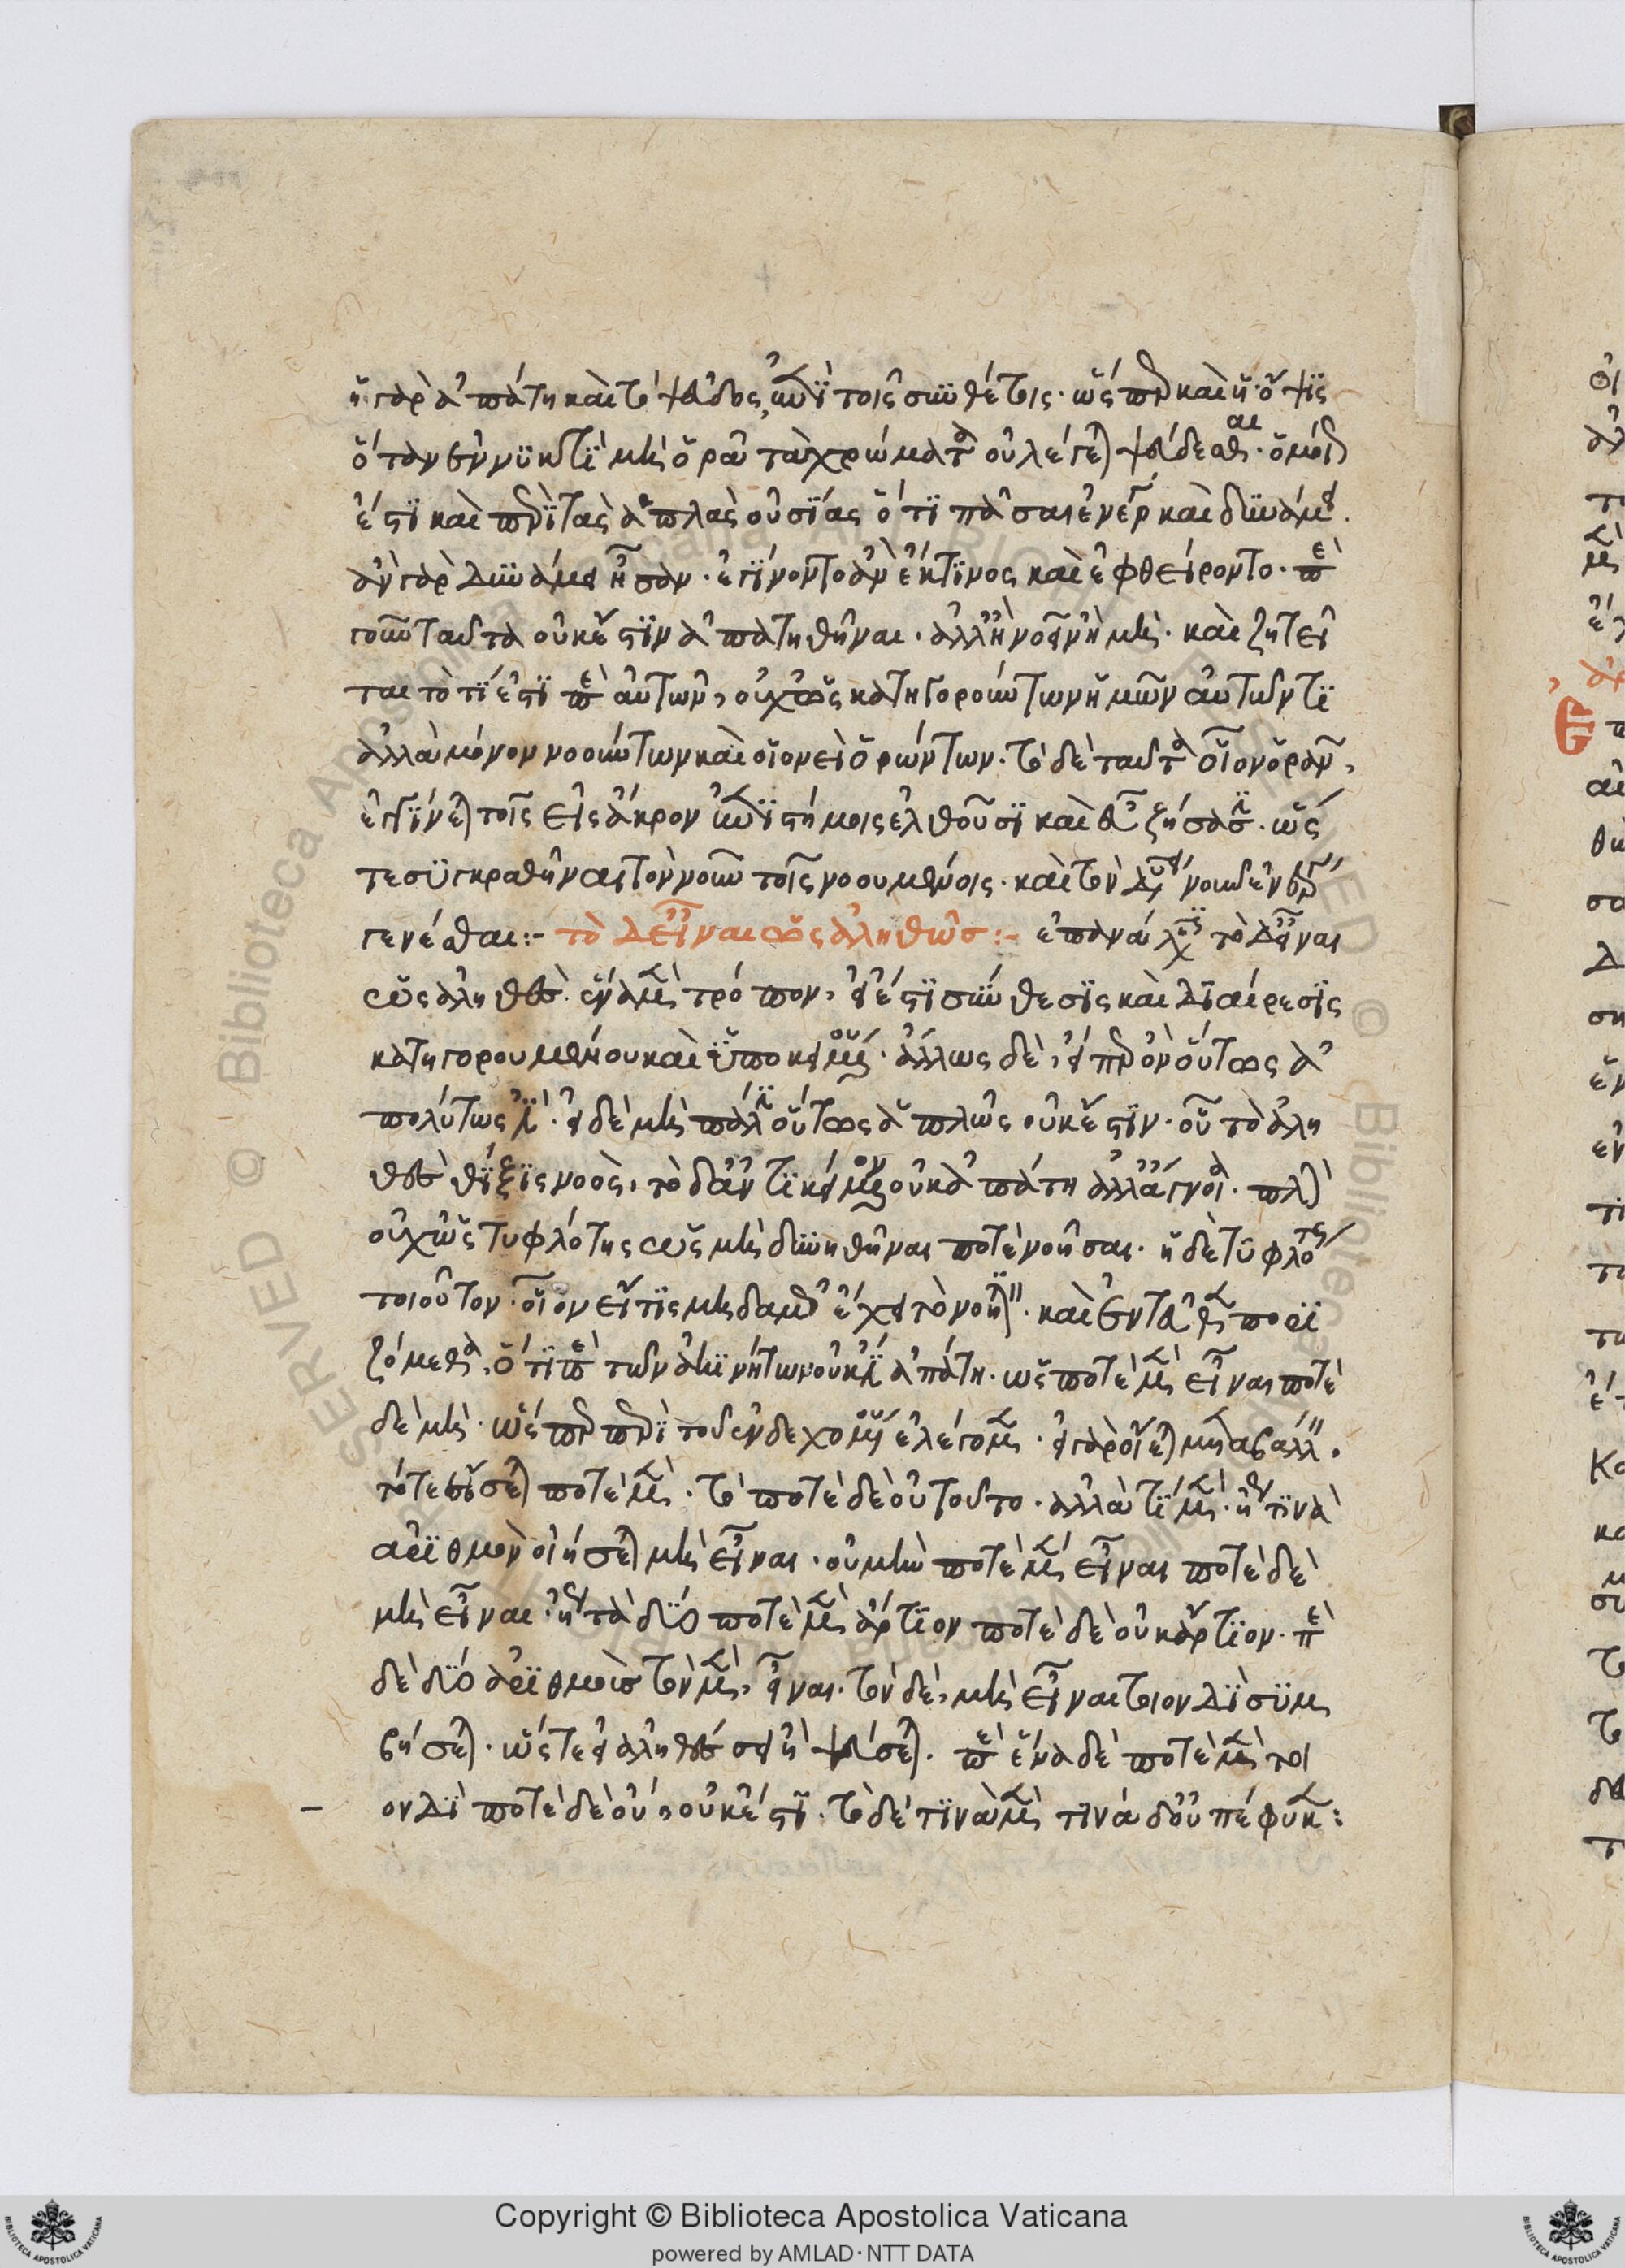 ἡ γὰρ ἀπάτη καὶ τὸ ψεῦδος, ἐν τοῖς συνθέτοις· ὥσπερ καὶ ἡ ὄψις
ὅταν ἐν νυκτὶ μὴ ὁρᾶ τὰ χρώματα οὐ λέγεται ψεύδεσθαι· ὅμοιον
ἐστὶ καὶ περὶ τὰς ἁπλὰς οὐσίας ὅτι πᾶσαι ἐνεργεία καὶ δυνάμει·
ἂν γὰρ δυνάμει ἦσαν· ἐγίνοντο ἂν ἔκ τινος καὶ ἐφθείροντο· περὶ
γοῦν ταῦτα οὐκ ἔστιν ἀπατηθῆναι· ἀλλ' ἢ νοεῖν ἢ μή· καὶ ζητεῖ
ται τὸ τί ἐστι περὶ αὐτῶν, οὐχ ὡς κατηγορούντων ἡμῶν αὐτῶν τι
ἀλλὰ μόνον νοούντων καὶ οἱονεὶ ὁρώντων· τὸ δὲ ταῦτα οἷον ὁρᾶν,
ἐγγίνεται τοῖς εἰς ἄκρον ἐπιστήμης ἐλθοῦσι καὶ εὖ ζήσασιν· ὥς
τε συγκραθῆναι τὸν νοῦν τοῖς νοουμένοις· καὶ τὸν δυνάμει νοῦν ἐνεργεία
γενέσθαι:- τὸ δ' εἶναι ὡς ἀληθῶσ:- ἐπαναλέγει τὸ δ' εἶναι
ὡς ἀληθές· ἕνα μὲν τρόπον, εἰ ἔστι σύνθεσις καὶ διαίρεσις
κατηγορουμένου καὶ ὑποκειμένου· ἄλλως δὲ, εἴπερ ὂν οὕτως ἀ
πολύτως ἐστί· εἰ δὲ μὴ πάλιν οὕτως ἁπλῶς οὐκ ἔστιν· οὗ τὸ ἀλη
θὲς θίξις νοὸς, τὸ δ' ἀντικείμενον οὐκ ἀπάτη ἀλλ' ἄγνοια· πλὴν
οὐχ ὡς τυφλότης ὡς μὴ δυνηθῆναι ποτὲ νοῆσαι· ἡ δὲ τυφλότης
τοιοῦτον· οἷον εἴ τις μηδαμῶς ἔχει τὸ νοεῖν· καὶ ἐντεῦθεν πορι
ζόμεθα, ὅτι περὶ τῶν ἀκινήτων οὐκ ἔστιν ἀπάτη· ὡς ποτὲ μὲν εἶναι ποτὲ
δὲ μή· ὥσπερ περὶ τοῦ ἐνδεχομένου ἐλέγομεν· εἰ γὰρ οἴεται μὴ μεταβάλλειν·
τότε οἰήσεται ποτὲ μὲν· τὸ ποτὲ δὲ οὐ τοῦτο· ἀλλὰ τὶ μὲν· ἢ τινὰ
ἀριθμὸν οἰήσεται μὴ εἶναι· οὐ μὴν ποτὲ μὲν εἶναι ποτὲ δὲ
μὴ εἶναι· ἢ τὰ δύο ποτὲ μὲν ἄρτιον ποτὲ δὲ οὐκ ἄρτιον· περὶ
δὲ δύο ἀριθμοὺς τὸν μὲν, εἶναι· τὸν δὲ, μὴ εἶναι τοιονδὶ συμ
βήσεται· ὥστε εἰ ἀληθεύσει ἢ ψεύσεται· περὶ ἕνα δὲ ποτὲ μὲν τοι
ονδὶ ποτὲ δὲ οὔ, οὐκ ἔστι· τὸ δὲ τινὰ μὲν τινὰ δ' οὐ πέφυκεν: